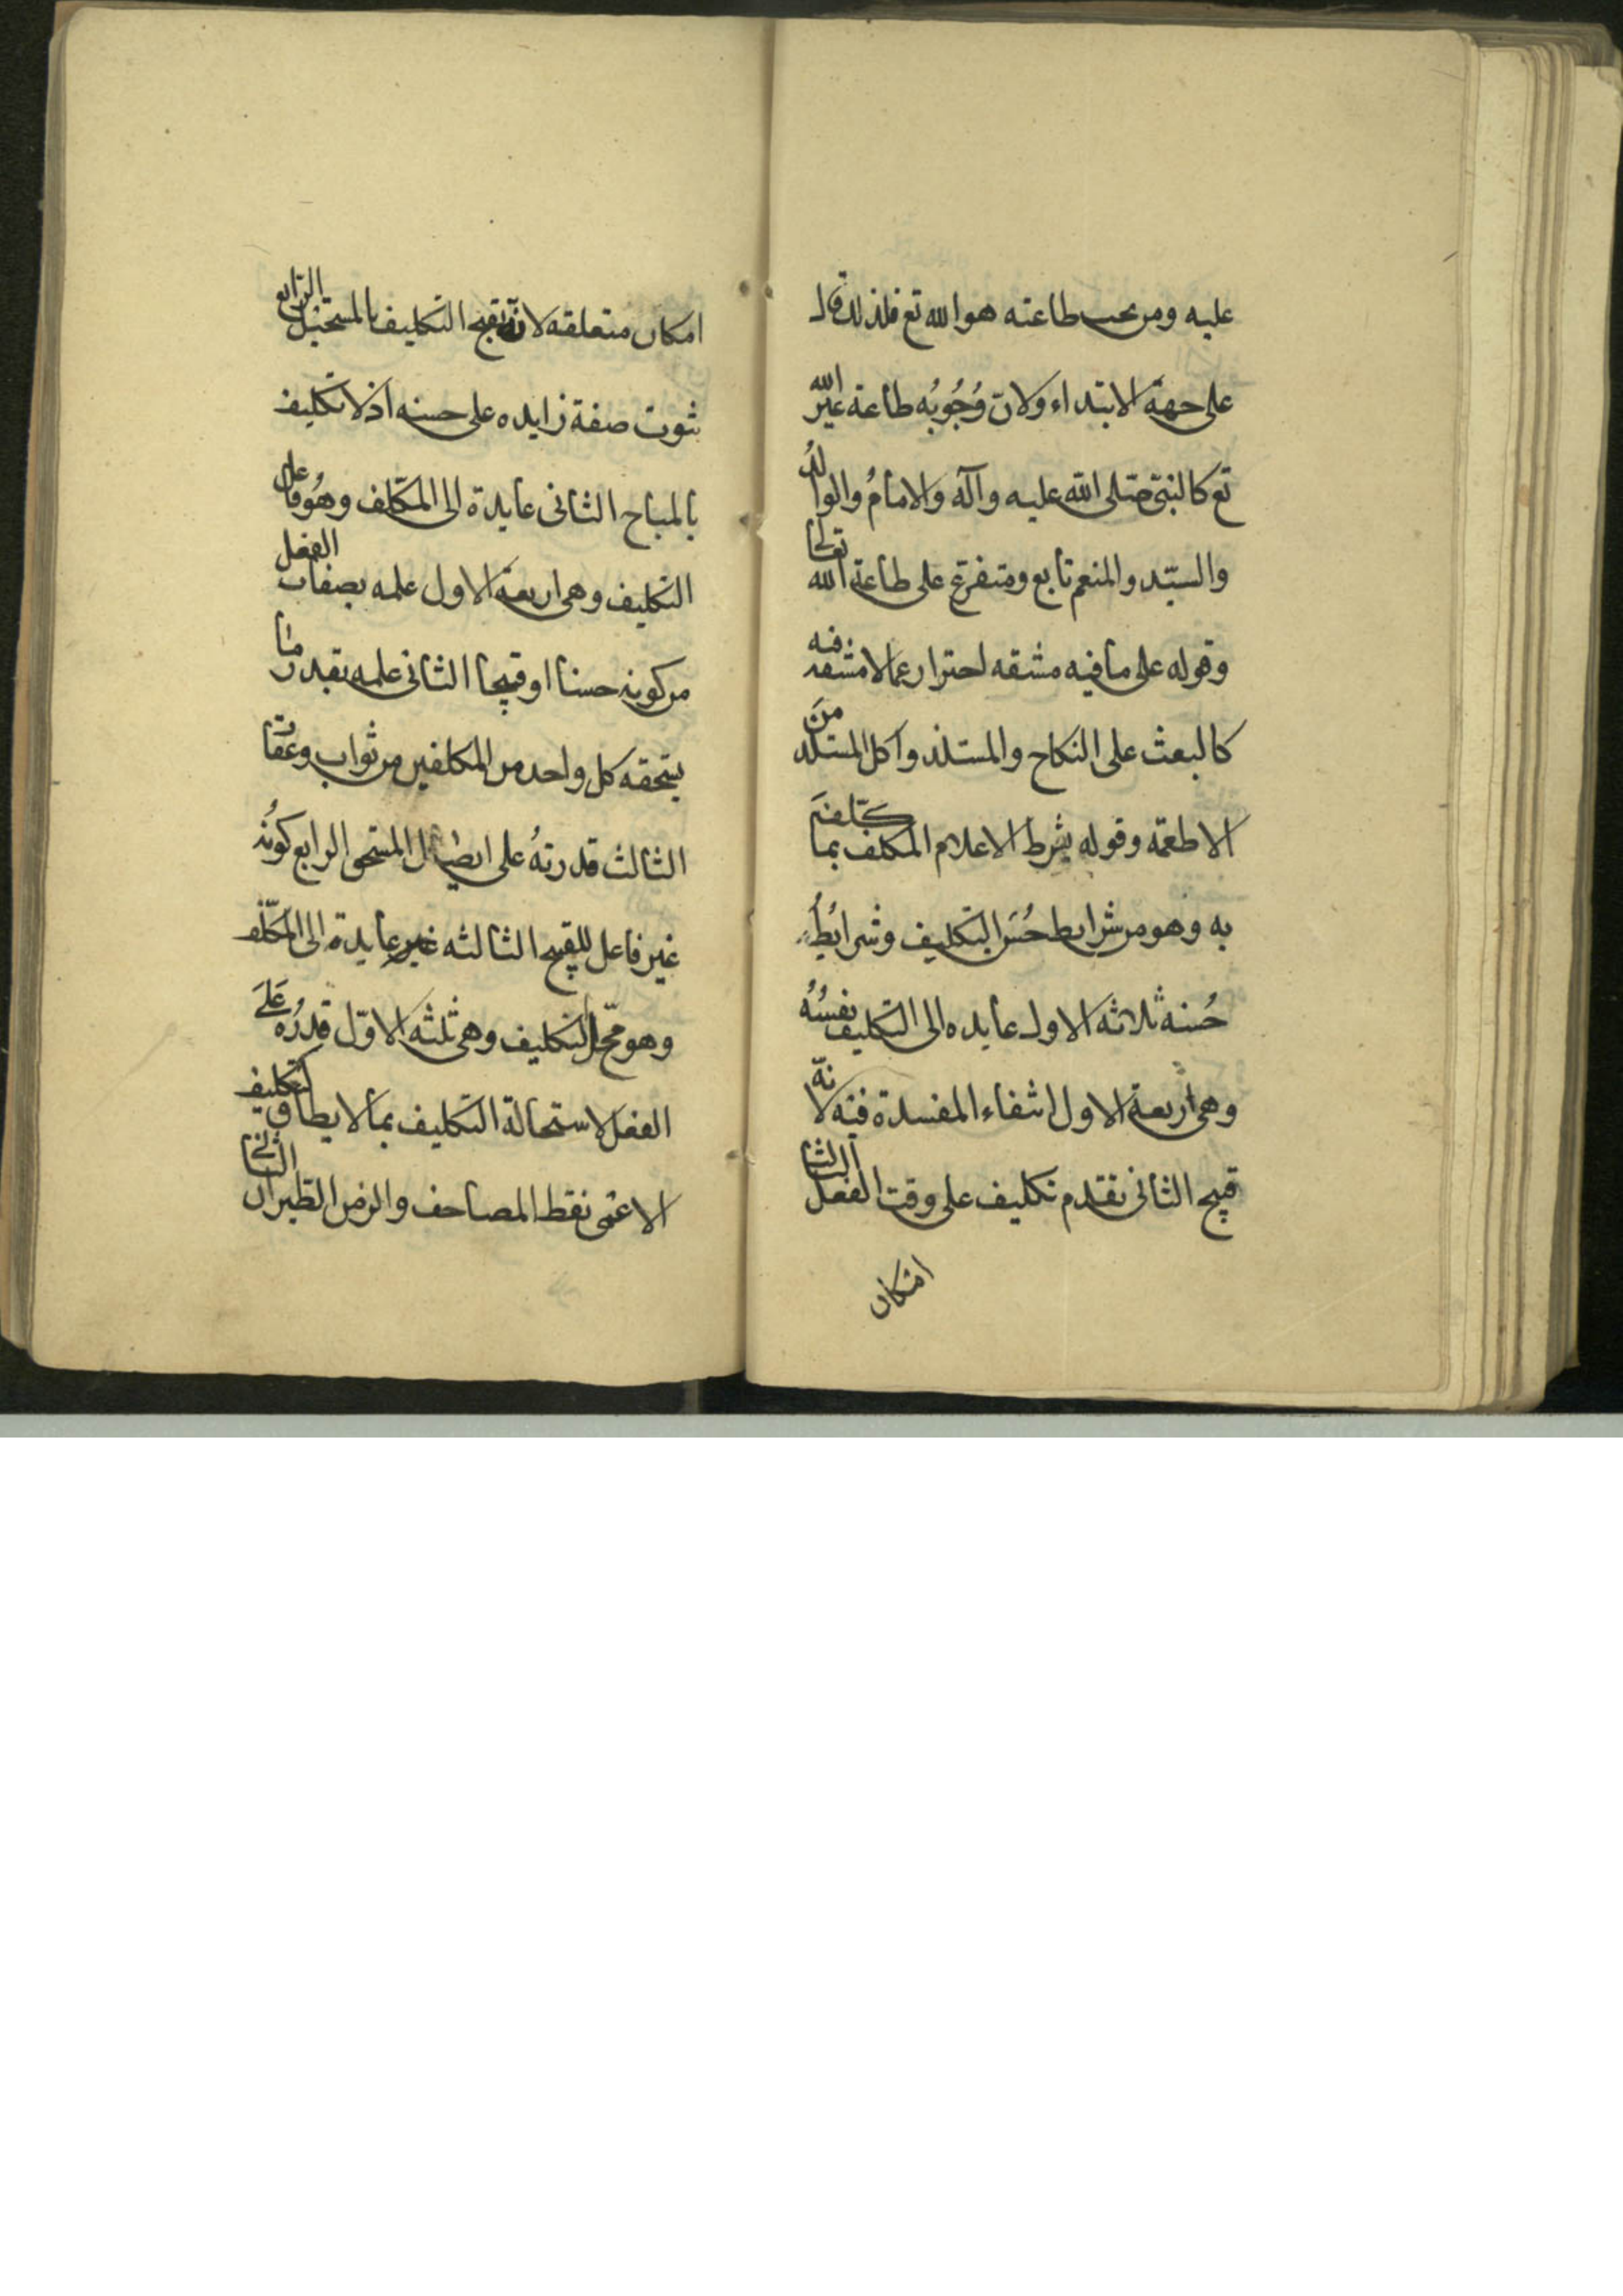 عليه ومن يجب طاعته هو الله تع فلذلك قال
على جهة الابتداء ولان وُجُوبُه طاعة غير الله
تع كالنبىّ صلى الله عليه وآله والامامُ والوالدُ
والسيّد والمنعم تابع ومتفرع على طاعة الله تعالى
وقوله على ما فيه مشقه احترار عما لا مشقه فيه
كالبعث على النكاح والمستلذ واكل المستلذ منَ
الاطعمة وقوله بشرط الاعلام المكلف بما كلّفَ
به وهو من شرايط حُسَن التكليف وشرايُطُ
حُسنه ثلاثه الاول عايده الى التكليف نفسُهُ
وهى اربعة الاول انتفاء المفسدة فيه لانّه
قبيح الثانى تقدم تكليف على وقت الفعل الثالث
امكان
امكان متعلقه لانّه يقبح التكليف بالمستحيل الرّابع
ثبوت صفة زايده على حسنه اذ لا تكليف
بالمباح الثانى عايدة الى المكلّف وهُو فاعل
التكليف وهى اربعة الاول علمه بصفات الفعل
من كونه حسنا او قبيحا الثانى علمه بقدر ما
يستحقه كل واحد من المكلفين من ثواب وعقاب
الثالث قدرتهُ على ايصال المستحق الرابع كونُه
غير فاعل للقبيح الثالثه غير عايدة الى المكلّف
وهو محّل التكليف وهى ثلثه الاوّل قدرُته عَلىَ
الفعل لاستحالة التكليف بما لا يطاق كتكليف
الاعمى نقط المصاحف والزمن الطيران الثانى